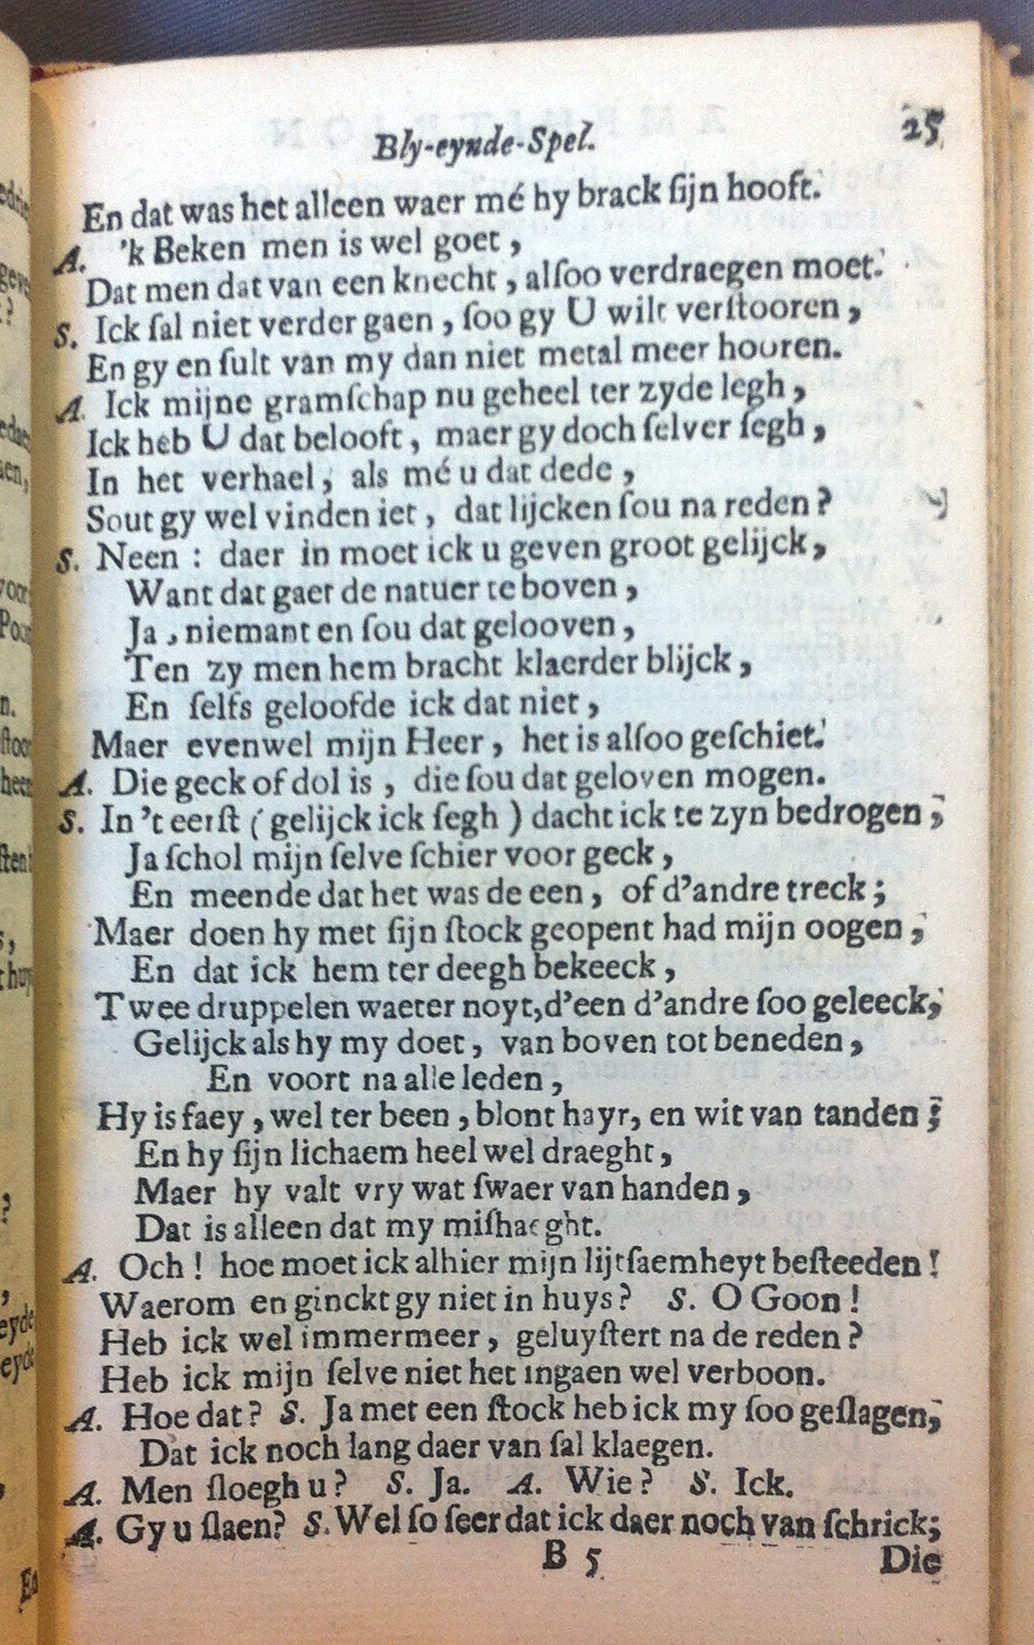 Bly-eynde-Spel. 25
En dat was het alleen waer mé hy brack ſijn hooft.
A. 'k Beken men is wel goet,
Dat men dat van een knecht, alſoo verdraegen moet.
S. Ick ſal niet verder gaen, ſoo gy U wilt verſtooren,
En gy en ſult van my dan niet metal meer hooren.
A. Ick mijne gramſchap nu geheel ter zyde legh,
Ick heb U dat belooft, maer gy doch ſelver ſegh,
In het verhael, als mé u dat dede,
Sout gy wel vinden iet, dat lijcken ſou na reden?
S. Neen: daer in moet ick u geven groot gelijck,
Want dat gaet de natuer te boven,
Ja, niemant en ſou dat gelooven,
Ten zy men hem bracht klaerder blijck,
En ſelfs geloofde ick dat niet,
Maer evenwel mijn Heer, het is alſoo geſchiet.
A. Die geck of dol is, die ſou dat geloven mogen.
S. In 't eerſt (gelijck ick ſegh) dacht ick te zyn bedrogen,
Ja ſchol mijn ſelve ſchier voor geck,
En meende dat het was de een, of d'andre treck;
Maer doen hy met ſijn ſtock geopent had mijn oogen,
En dat ick hem ter deegh bekeeck,
Twee druppelen waeter noyt, d'een d'andre ſoo geleeck,
Gelijck als hy my doet, van boven tot beneden,
En voort na alle leden,
Hy is faey, wel ter been, blont hayr, en wit van tanden;
En hy ſijn lichaem heel wel draeght,
Maer hy valt vry wat ſwaer van handen,
Dat is alleen dat my miſhaeght.
A. Och! hoe moet ick alhier mijn lijtſaemheyt beſteeden!
Waerom en ginckt gy niet in huys? S. O Goon!
Heb ick wel immermeer, geluyſtert na de reden?
Heb ick mijn ſelve niet het ingaen wel verboon.
A. Hoe dat? S. Ja met een ſtock heb ick my ſoo geſlagen,
Dat ick noch lang daer van ſal klaegen.
A. Men ſloegh u? S. Ja. A. Wie? S. Ick.
A. Gy u ſlaen? S. Wel ſo ſeer dat ick daer noch van ſchrick;
B 5 Die